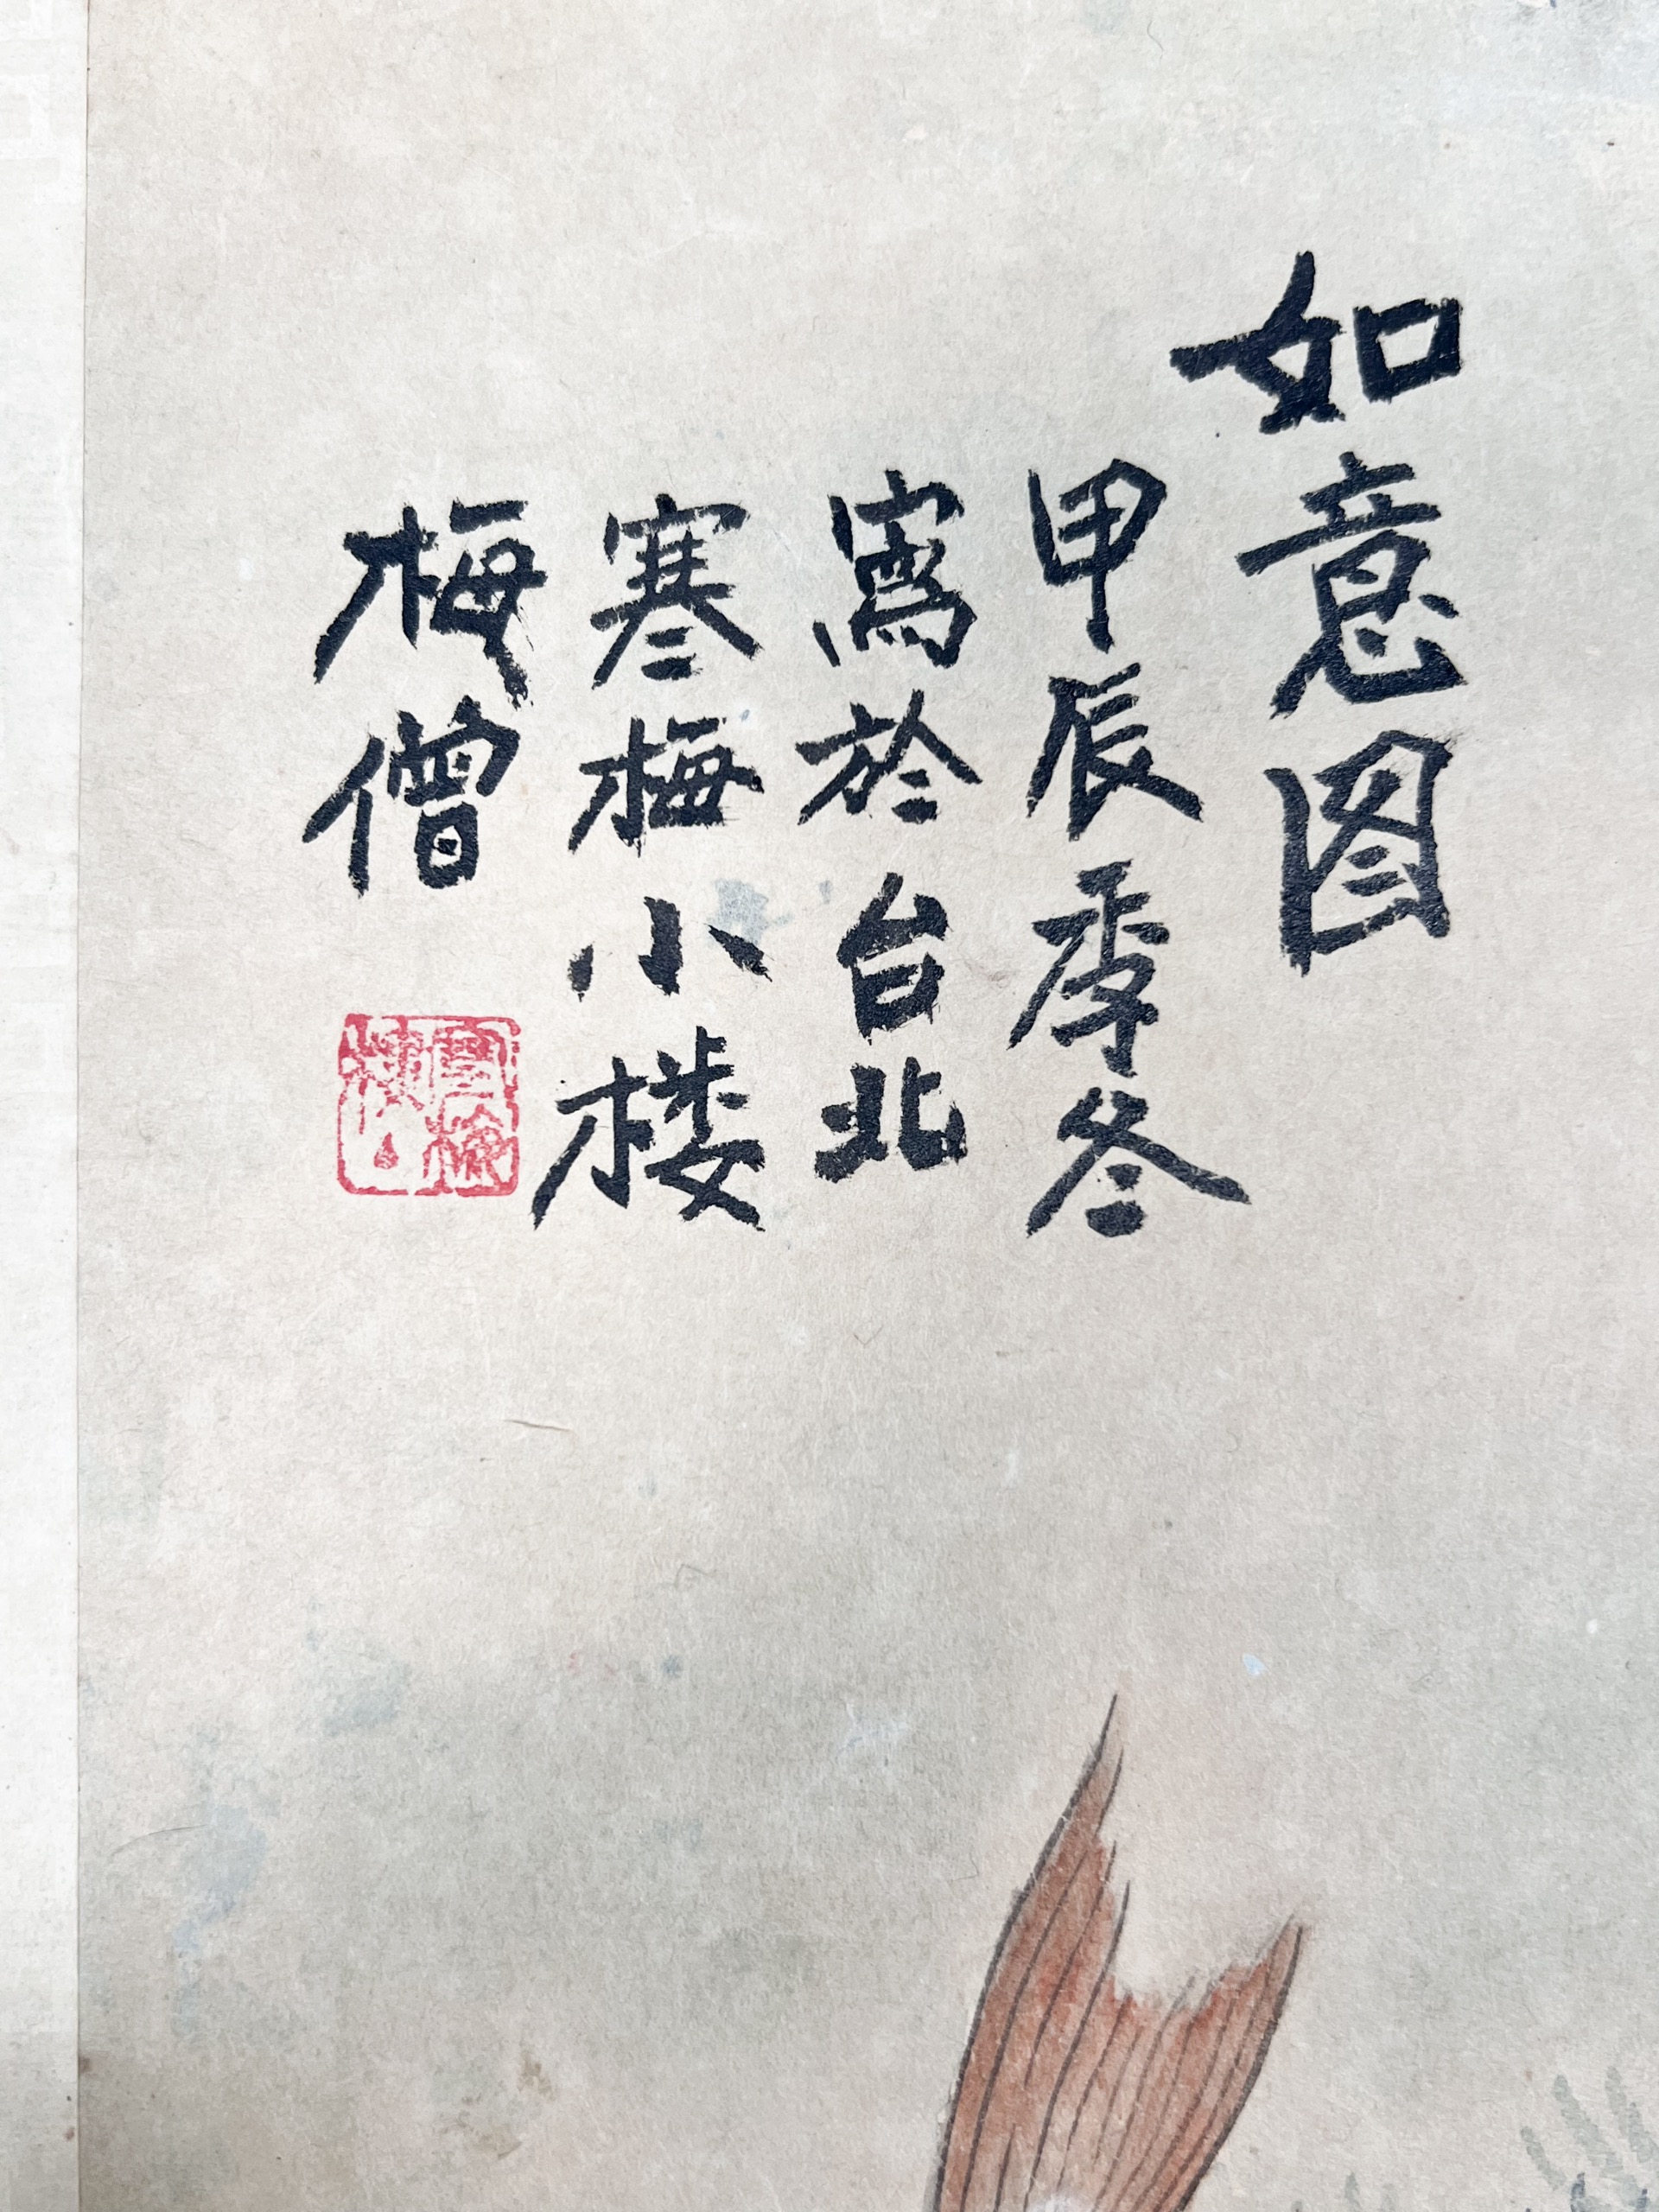 如意图
甲辰季冬
寫於台北
寒梅小楼
梅僧